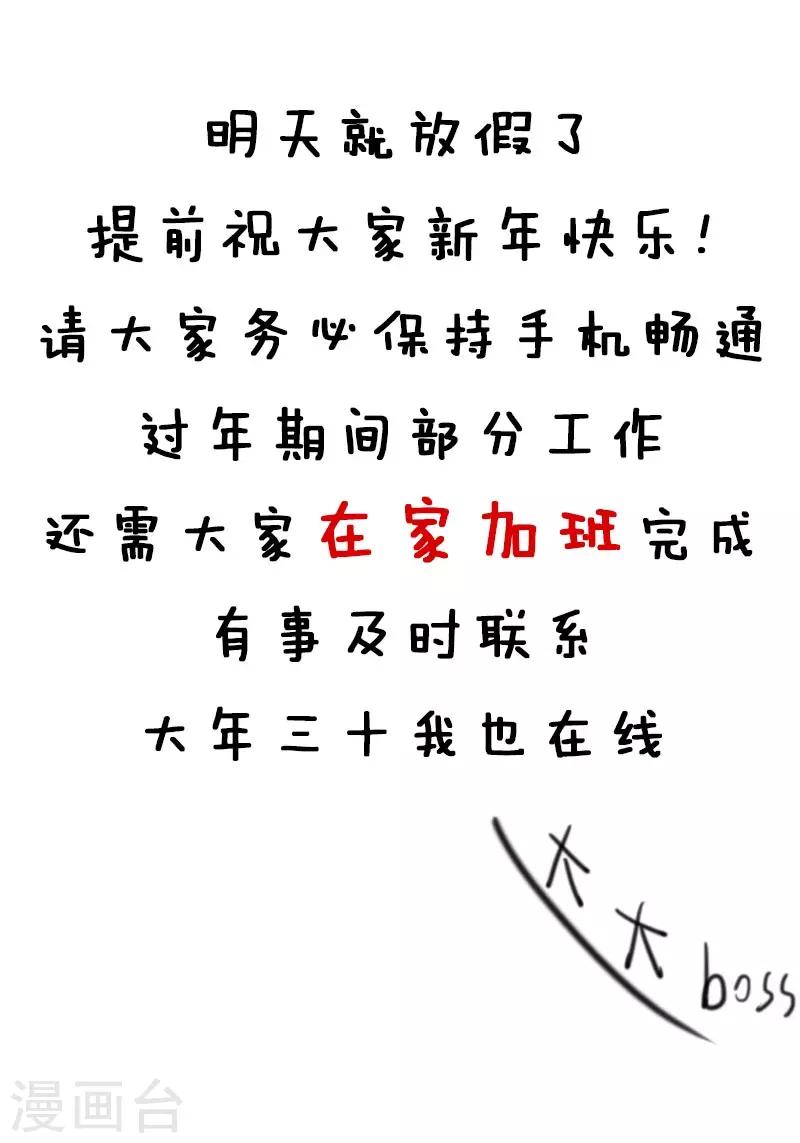 明天就放假了
提前祝大家新年快乐!
请大家务必保持手机畅通
过年期间部分工作
还需大家在家加班完成
有事及时联系
大年三十我也在线
大大boss
漫画台